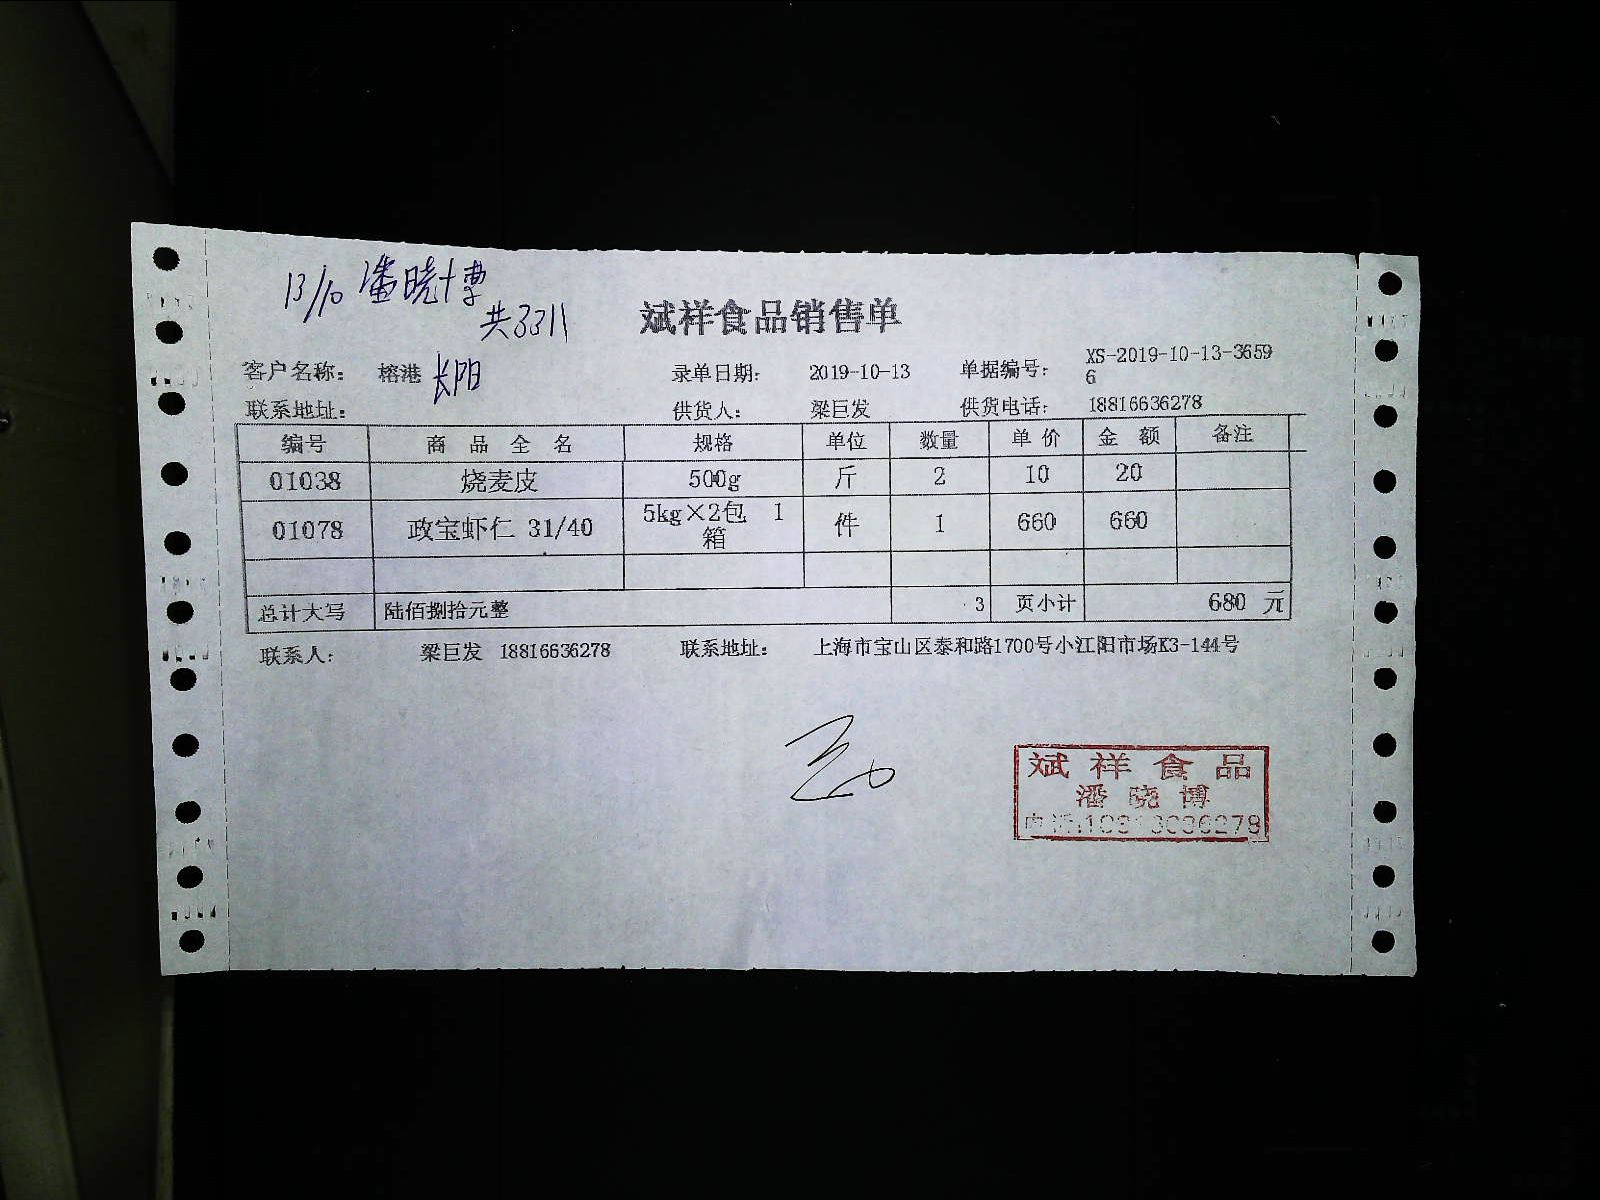 13/10 潘晓博
共3311
斌祥食品销售单
客户名称: 榕港 长阳 录单日期: 2019-10-13 单据编号: XS-2019-10-13-3659
6
联系地址: 供货人: 梁巨发 供货电话: 18816636278
编号 商品全名 规格 单位 数量 单价 金额 备注
01038 烧麦皮 500g 斤 2 10 20
01078 政宝虾仁 31/40 5kg×2包 1 件 1 660 660
箱
总计大写 陆佰捌拾元整 3 页小计 680 元
联系人: 梁巨发 18816636278 联系地址: 上海市宝山区泰和路1700号小江阳市场K3-144号
斌祥食品
潘晓博